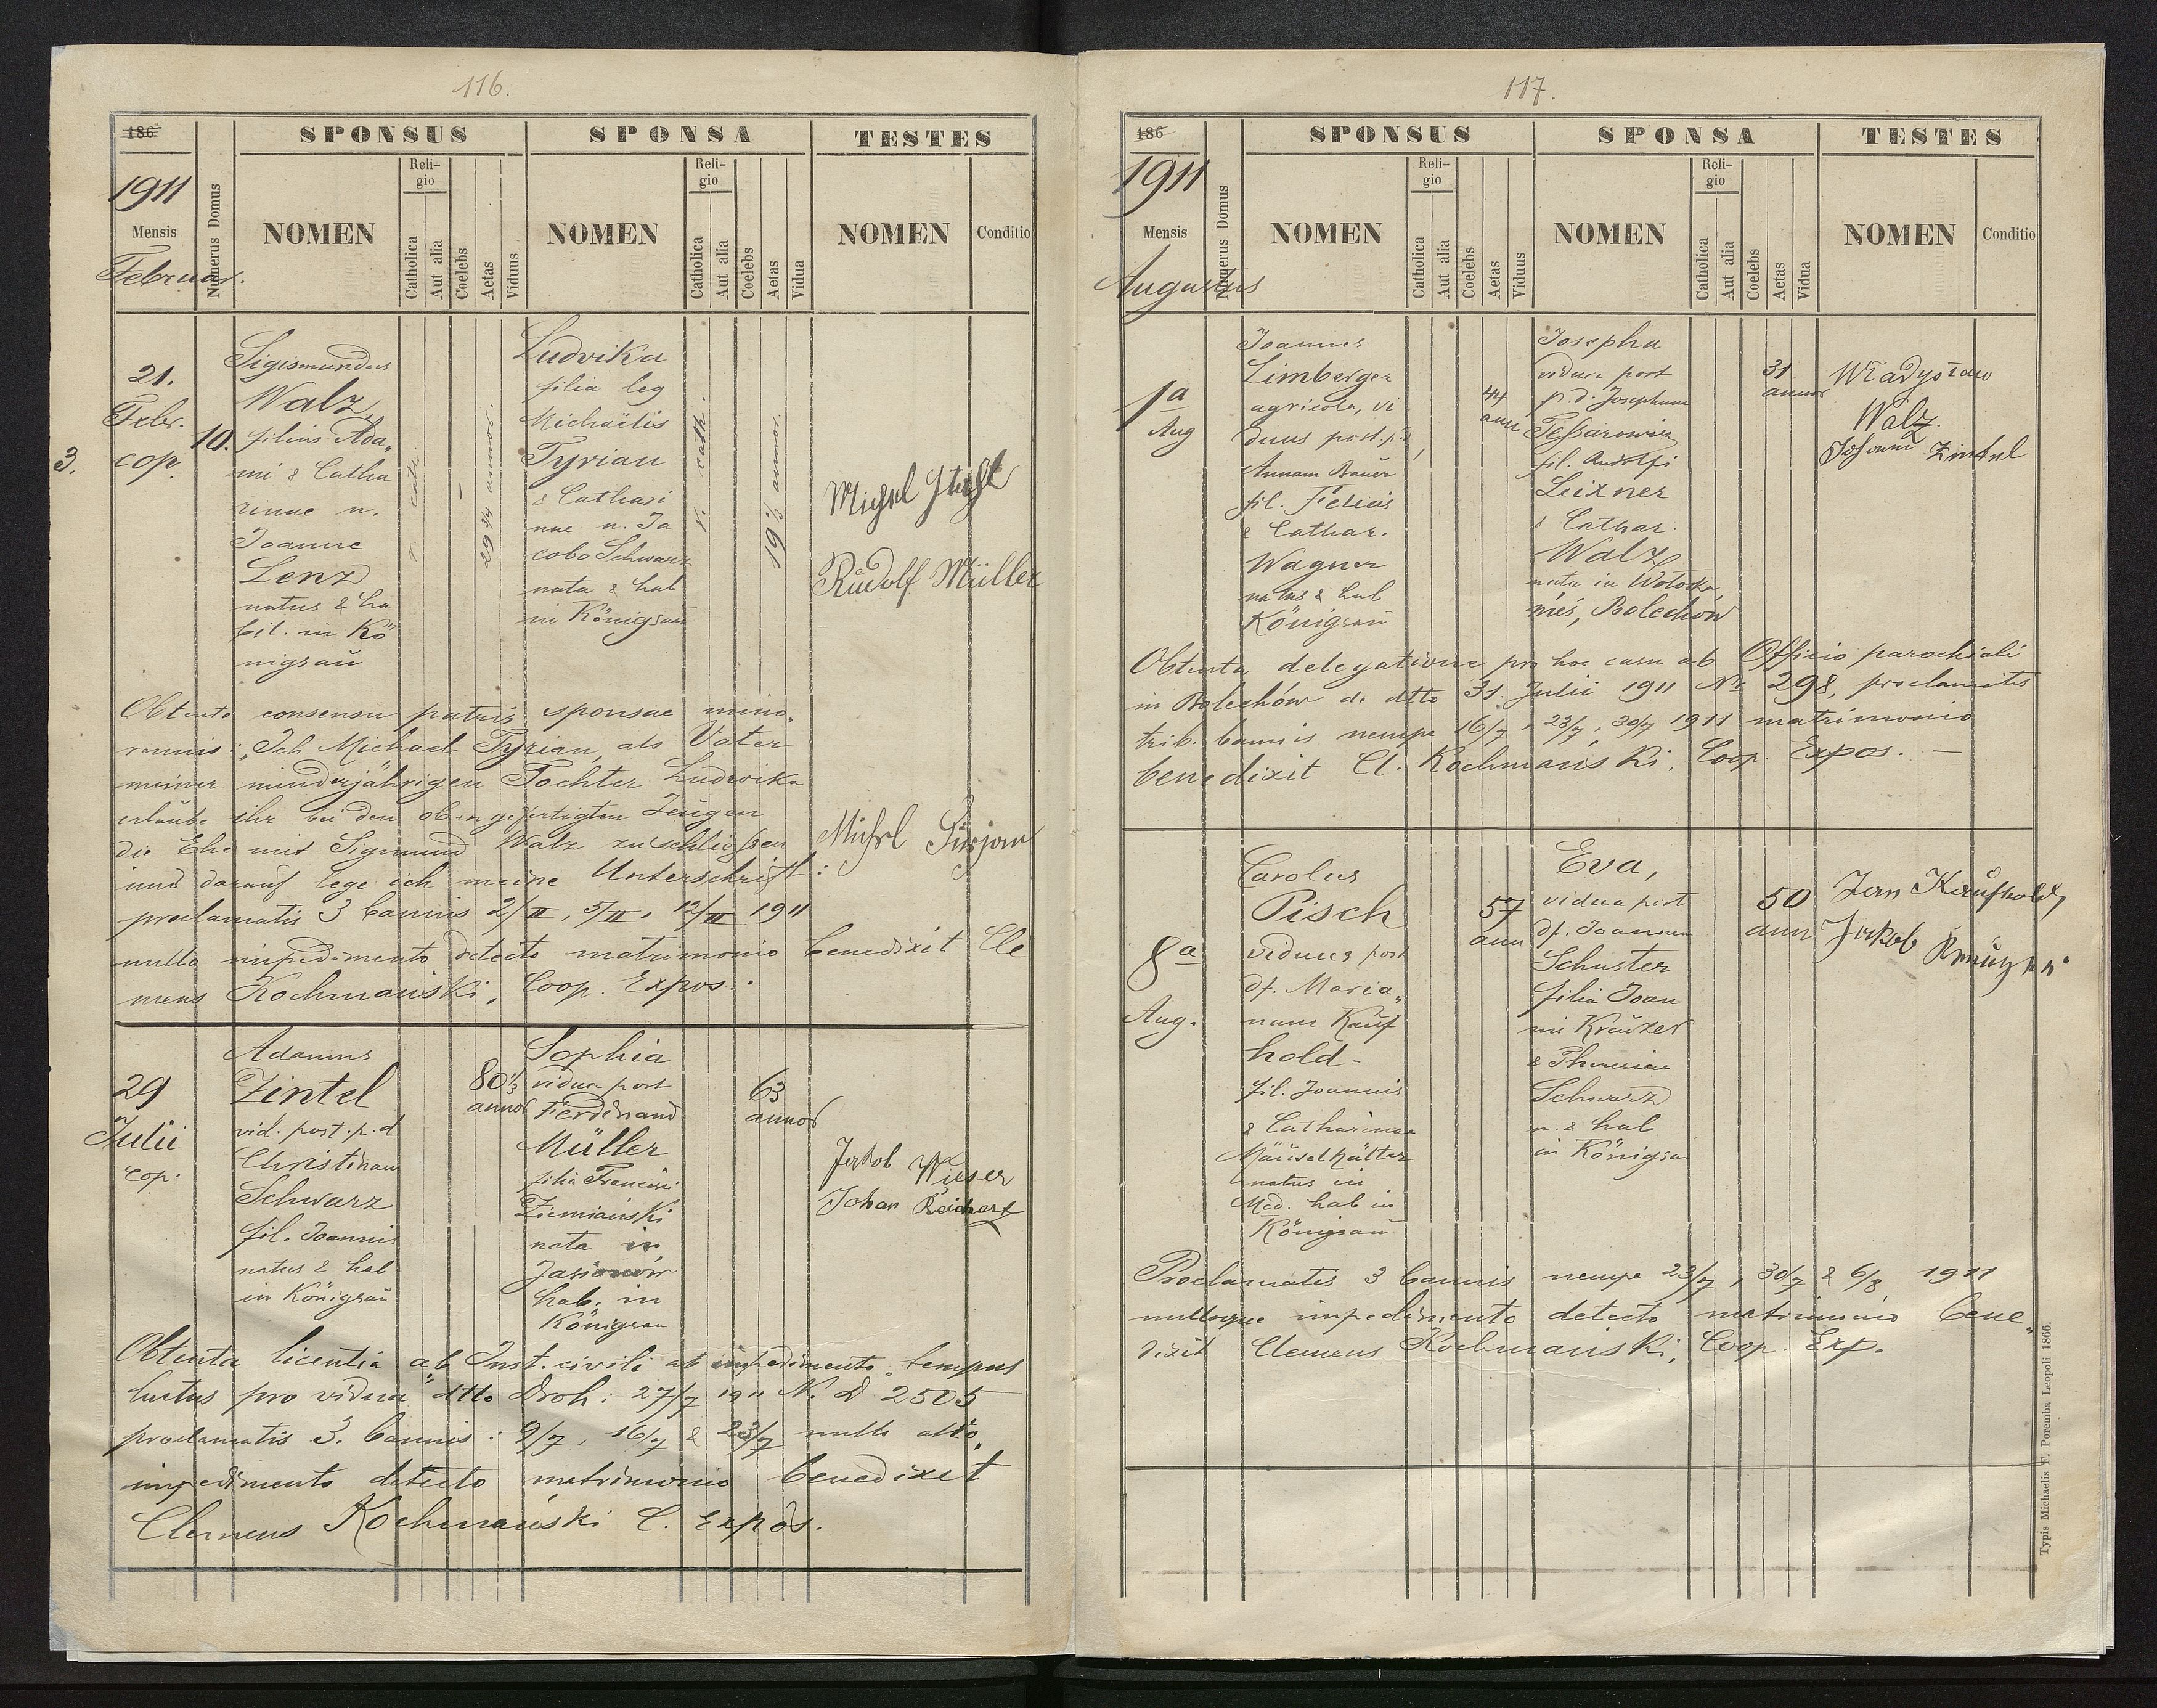 116.
186
SPONSUS
SPONSA
TESTES
1911
Mensis
Februar.
Numerus Domus
NOMEN
Religio
Catholica
Aut alia
Coelebs
Aetas
Viduus
NOMEN
Religio
Catholica
Aut alia
Coelebs
Aetas
Vidua
NOMEN
Conditio
3.
21.
Febr.
cop.
10.
Sigismundus
Walz,
filius Ada„
mi & Catha
rinae n.
Joanne
Lenz
natus & ha
bit. in Kö
nigsaŭ
r. cath.
29 3/4 annor.
Ludvika
filia leg
Michaëlis
Tyrian
& Cathari
nae n. Ja
cobo Schwarz
nata & hab
in Königsaŭ
r. cath.
19 1/3 annor.
Rŭdolf Müller
Obtento consensu patris sponsae mino„
rennis: „Ich Michael Tyrian, als Vater
meiner minderjährigen Tochter Ludwika
erlaube ihr bei den obengefertigten Zeŭgen
die Ehe mit Sigmund Walz zu schließen
und darauf lege ich meine Unterschrift:
Michel
proclamatis 3 bannis 2/II, 5/II, 12/II 1911
nullo impedimento detecto matrimonio benedixit Cle
mens Kochmański, Coop. Expos.
29
Julii
cop.
Adamus
Zintel
vid. post. p. d
Christinam
Schwarz
fil. Joannis
natus & hab
in Königsaŭ
80 1/3
annor
Sophia
vidua post
Ferdinand
Müller
filia Francisci
Ziemiański
nata in
hab. in
Königsau
63
annor
Jakob Wieser
Johan Reichert
Obtenta licentia ab Inst. civili ab impedimento „tempus
luctus pro vidua" dtto Droh: 27/7 1911 N. d 2505
proclamatis 3. bannis: 9/7, 16/7 & 23/7 nullo alio
impedimento detecto matrimonio benedixit
Clemens Kochmański C. Expos.
117.
186
SPONSUS
SPONSA
TESTES
1911
Mensis
Augustus
Numerus Domus
NOMEN
Religio
Catholica
Aut alia
Coelebs
Aetas
Viduus
NOMEN
Religio
Catholica
Aut alia
Coelebs
Aetas
Vidua
NOMEN
Conditio
1a
Aug
Joannes
Limberger
agricola, vi
duus post. p. d
Annam Baŭer
fil. Felicis
& Cathar.
Wagner
natus & hab
Königsaŭ
44
ann
Josepha
vidua post
p. d. Josephum
Teßarowicz
fil. Andolfi
Leixner
& Cathar.
Walz
nata in Wołoska
wieś, Bolechów
31
annor
Władysław
Walz.
Johann Zintel
Obtenta delegatione pro hoc casu ab Officio parochiali
in Bolechów de dtto 31. Julii 1911 Nr 298, proclamatis
trib. bannis nempe 16/7, 23/7, 30/7 1911 matrimonio
benedixit Cl. Kochmański, Coop. Expos. —
8a
Aug.
Carolus
Pisch
viduus post
df. Maria„
nam Kaŭf
hold-
fil. Joannis
& Catharinae
natus in
Med. hab in
Königsaŭ
57
ann
Eva,
vidua post
df. Joannem
Schuster
filia Joan
ni Kreŭzer
& Theresiae
Schwarz
n. & hab
in Königsa
50
ann
Jan Kaŭfhold,
Jakob
Proclamatis 3 bannis nempe 23/7, 30/7 & 6/8 1911
nulloque impedimento detecto matrimonio bene„
dixit Clemens Kochmański, Coop. Exp.
Typis Michaelis F. Poremba Leopoli 1866.